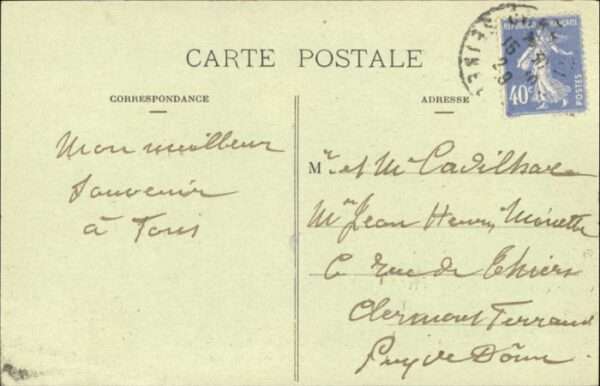 CARTE POSTALE
CORRESPONDANCE
Mon meilleur
souvenir
à Tous
ADRESSE
Mr et Me Cadilhac
Me Jean Henry
6 rue de Thiers
Clermont Ferrand
Puy de Dôme
RÉPUBLIQUE FRANÇAISE
40c
POSTES